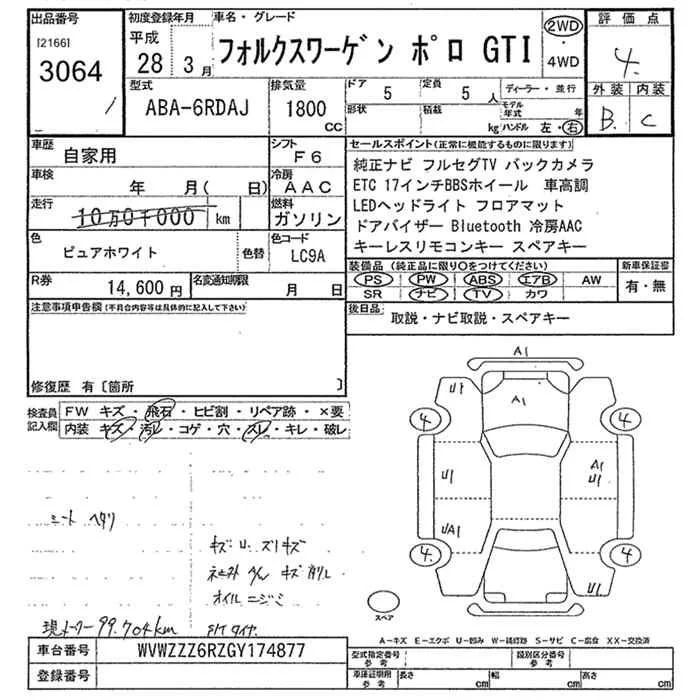 出品番号
[2166]
3064
初度登録年月
平成
28 3月
車名・グレード
フォルクスワーゲン ポロ GTI
2WD
・
4WD
評価点
4.
外装 内装
B. C
型式
ABA-6RDAJ
排気量
1800
CC
ドア 5
定員 5 人
形状
積載 kg
ディーラー・並行
モデル年式 年
ハンドル 左・右
車歴
自家用
シフト
F6
車検
年 月( 日)
冷房
AAC
走行
10万0千000 km
燃料
ガソリン
色
ピュアホワイト
色替
色コード
LC9A
R券
14,600 円
名変通知期限
月 日
セールスポイント(正常に機能するものに限ります)
純正ナビ フルセグTV バックカメラ
ETC 17インチBBSホイール 車高調
LEDヘッドライト フロアマット
ドアバイザー Bluetooth 冷房AAC
キーレスリモコンキー スペアキー
装備品(純正品に限り○をつけてください)
PS PW ABS エアB AW
SR ナビ TV カワ
新車保証書
有・無
後日品
取説・ナビ取説・スペアキー
注意事項申告欄(不具合内容等は具体的に記入して下さい)
修復歴 有〔箇所 〕
検査員
記入欄
FW キズ・飛石・ヒビ割・リペア跡・×要
内装 キズ・汚レ・コゲ・穴・スレ・キレ・破レ
シート ヘタリ
キズ U. スリキズ
オイル ニジミ
現メーター 99.704km
A1
U1
A1
4
4
U1
A1
U1
UA1
4.
4
U1
スペア
A-キズ E-エクボ U-凹み W-補修跡 S-サビ C-腐食 XX-交換済
車台番号
WVWZZZ6RZGY174877
登録番号
型式指定番号
参考
類別区分番号
参考
車庫証明用
参考
長さ cm
幅 cm
高さ cm